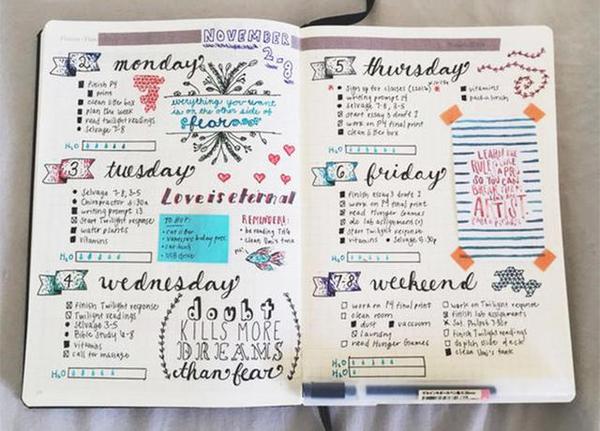 NOVEMBER
2-8
2 monday
finish P4
print
clean litter box
plan the week
read twilight readings
Selvage 7-8
H2O
everything you want
is on the other side of
fear
3 tuesday
Selvage 7-8, 3-5
Chiropractor 6:30a
writing prompt 13
Start Twilight response
water plants
vitamins
H2O
Love is eternal
TO BUY:
cat litter
USB drive
REMINDERS:
be reading
clean Umi's tank
4 wednesday
finish Twilight response
Twilight readings
selvage 3-5
Bible Study 6-8
vitamins
call for massage
H2O
doubt
KILLS MORE
DREAMS
than fear
5 thursday
sign up for classes
writing prompt 14
Selvage 7-8, 3-5
start essay 3 draft 1
work on P4 final print
clean litter box
vitamins
pack lunch
H2O
LEARN THE
RULES LIKE
A PRO
SO YOU CAN
BREAK THEM
LIKE AN
ARTIST
PABLO PICASSO
6 friday
finish essay 3 draft 1
work on P4 final print
read Hunger Games
do lab assignment(s)
start Twilight response
vitamins
Selvage
H2O
7-8 weekend
work on P4 final print
clean room
dust
vacuum
laundry
read Hunger Games
work on Twilight response
finish lab assignments
finish Twilight readings
clean Umi's tank
H2O
H2O